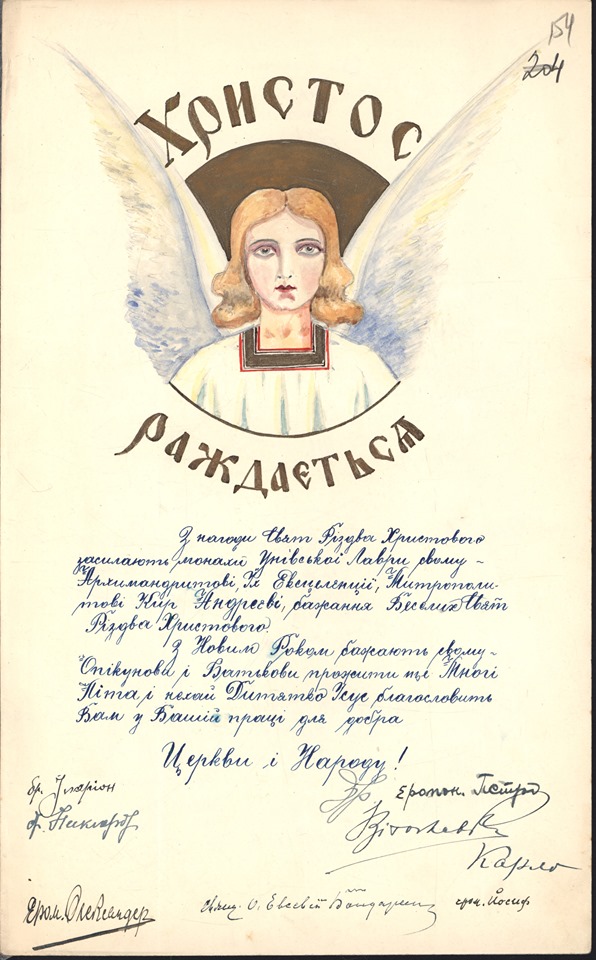 154
204
Христос
раждається
З нагоди Свят Різдва Христового
засилають монахи Унівської Лаври свому -
Архимандритові Їх Ексцеленції, Митрополи-
тові Кир Андреєві, бажання Веселих Свят
Різдва Христового.
З Новим Роком бажають свому -
Опікунови і Батькови прожити ще Многі
Літа і нехай Дитятко Ісус благословить
Вам у Вашій праці для добра
Церкви і Народу!
бр. Іларіон
єромон. Петро
бр.
Карло
єром. Олександер
о. Евсевій
єром. Йосиф